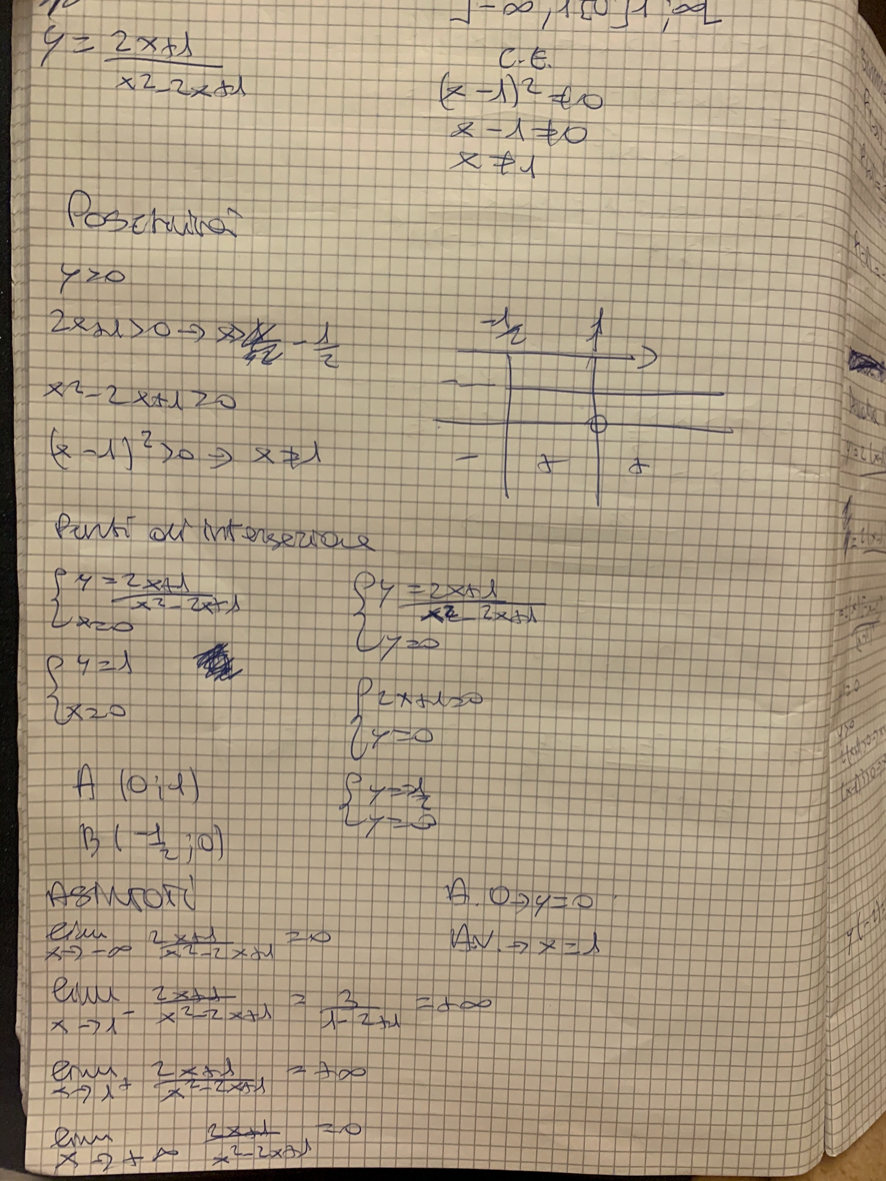 ]-∞; 1[ ∪ ]1; ∞[
y = (2x+1)/(x²-2x+1)
C.E.
(x-1)² ≠ 0
x-1 ≠ 0
x ≠ 1
Positività
y>0
2x+1>0 → x> -1/2
-1/2 1
x²-2x+1>0
(x-1)²>0 → x≠1
- + +
Punti di intersezione
{ y = (2x+1)/(x²-2x+1)
x=0
{ y = (2x+1)/(x²-2x+1)
y=0
{ y=1
x=0
{ 2x+1=0
y=0
A (0;1)
{ y=-1/2
y=0
B (-1/2;0)
ASINTOTI
A.O→y=0
A.V.→x=1
lim x→-∞ (2x+1)/(x²-2x+1) = 0
lim x→1⁻ (2x+1)/(x²-2x+1) = 3/(1-2+1) = +∞
lim x→1⁺ (2x+1)/(x²-2x+1) = +∞
lim x→+∞ (2x+1)/(x²-2x+1) = 0